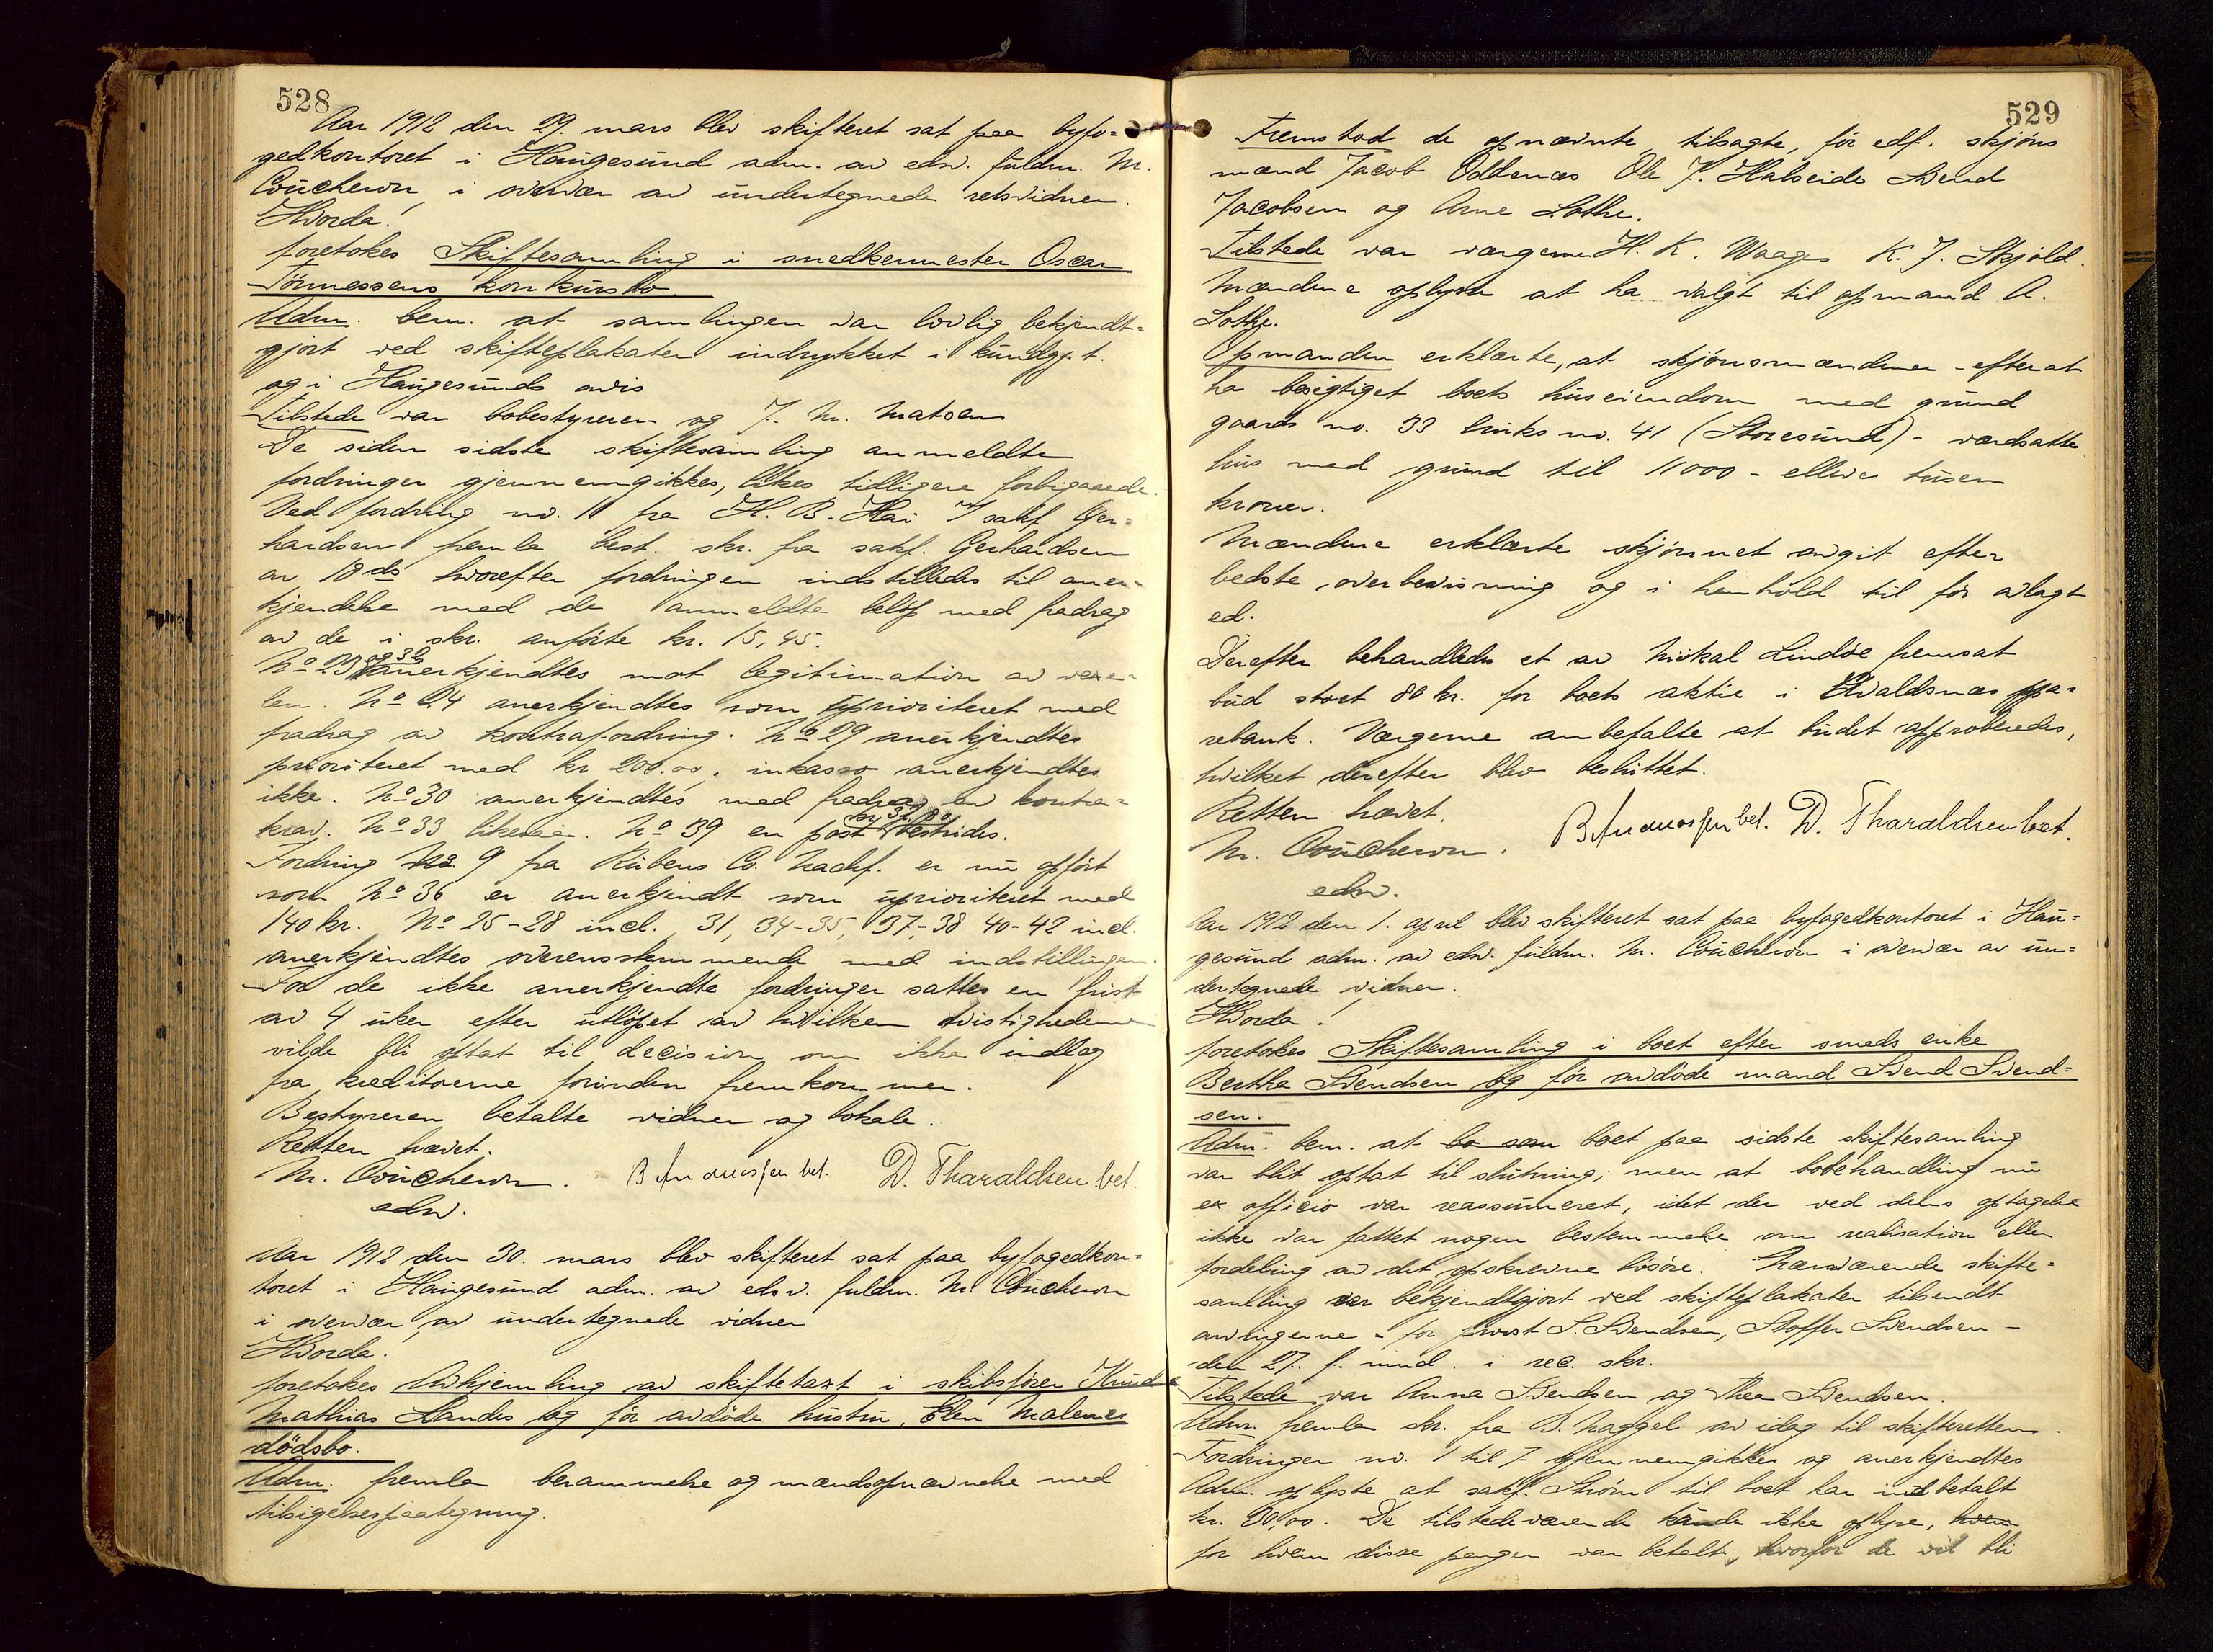 528
Aar 1912 den 29. mars blev skifteret sat paa byfo-
gedkontoret i Haugesund adm. av edsv. fuldm. M.
Coucheron, i overvær av undertegnede retsvidner.
Hvorda!
foretokes Skiftesamling i snedkermester Oscar
Tönnessens konkursbo.
Adm. bem. at samlingen var lovlig bekjendt-
gjort ved skifteplakaten indrykket i kundgj.t.
og i Haugesunds avis
Tilstede var bobestyreren og J. M. Matsen
De siden sidste skiftesamling anmeldte
fordringer gjennemgikkes, likes tidligere forbigaaede.
Ved fordring no. 11 fra H. B. Hai / sakf. Ger-
hardsen femla best. skr. fra sakf. Gerhardsen
av 18 ds hvorefter fordringen indstilledes til aner-
kjendelse med de anmeldte beløp med fradrag
av de i skr. anførte kr. 15,45.
No 23 og 32 anerkjendtes mot legitimation av vexe-
len. No 24 anerkjendtes som uprioriteret med
fradrag av kontrafordring. No 29 anerkjendtes
prioriteret med kr 200.00, inkasso anerkjendtes
ikke. No 30 anerkjendtes med fradrag av kontra-
krav. No 33 likesaa. No 39 en post bestrides.
Fordring No. 9 fra Rubens Co. Nachf. er nu opført
som No 36 er anerkjendt som uprioriteret med
140 kr. No 25-28 incl., 31, 34-35, 37-38 40-42 incl.
anerkjendtes overensstemmende med indstillingen.
For de ikke anerkjendte fordringer sattes en frist
av 4 uker efter utløpet av hvilken tvistighederne
vilde bli optat til decision om ikke indlæg
fra kreditorerne forinden fremkommer.
Bestyreren betalte vidner og lokale.
Retten hævet.
M. Coucheron. B Amdnessen bet. D. Tharaldsen bet.
edsv.
Aar 1912 den 30. mars blev skifteret sat paa byfogedkon-
toret i Haugesund adm. av edsv. fuldm. M. Coucheron
i overvær av undertegnede vidner
Hvorda!
foretokes Avhjemling av skiftetaxt i skibsfører Knud
Mathias Landes og før avdøde hustru, Elen Malenes
dödsbo.
Adm. fremla berammelse og mændsopnævnelse med
tilsigelsespaategning.
529
Fremstod de opnævnte, tilsagte, før edf. skjøns
mænd Jacob Oddenæs Ole J. Halseide Svend
Jacobsen og Arne Lothe.
Tilstede var vargerne H. K. Waage K. J. Skjold.
Mændene oplyste at ha valgt til opmand A.
Lothe.
Opmanden erklærte, at skjønsmændene - efterat
ha besigtiget boets huseiendom med grund
gaards no. 33 bruks no. 41 (Storesund) - værdsatte
hus med grund til 11000 - elleve tusen
kroner.
Mændene erklærte skjønnet avgit efter
bedste overbevisning og i henhold til før avlagt
ed.
Derefter behandledes et av Mikal Lindøe fremsat
bud stort 80 kr. for boets aktie i Avaldsnæs spa-
rebank. Vargerne anbefalte at budet approberedes,
hvilket derefter blev besluttet.
Retten hævet.
M. Coucheron. B Amdnessen bet. D. Tharaldsen bet.
edsv.
Aar 1912 den 1. april blev skifteret sat paa byfogedkontoret i Hau-
gesund adm. av edsv. fuldm. M. Coucheron i overvær av un-
dertegnede vidner.
Hvorda!
foretokes Skiftesamling i boet efter smeds enke
Berthe Svendsen og før avdøde mand Svend Svend-
sen.
Adm. bem. at bo som boet paa sidste skiftesamling
var blit optat til slutning; men at bobehandling nu
ex officio var reassumeret, idet der ved dens optagelse
ikke var fattet nogen bestemmelse om realisation eller
fordeling av det opskrevne løsøre. Nærværende skifte-
samling var bekjendtgjort ved skifteplakater tilsendt
arvingerne - for frost S. Svendsen, Stoffer Svendsen -
den 27. f. mnd. i rec. skr.
Tilstede var Anna Svendsen og Thea Svendsen.
Adm. fremla skr. fra B. Naggel av idag til skifteretten.
Fordringer no. 1 til 7 gjennemgikkes og anerkjendtes
Adm. oplyste at sakf. Strøm til boet har indbetalt
kr. 30,00. De tilstedeværende kunde ikke oplyse, hvem
for hvem disse penger var betalt, hvorfor de vil bli